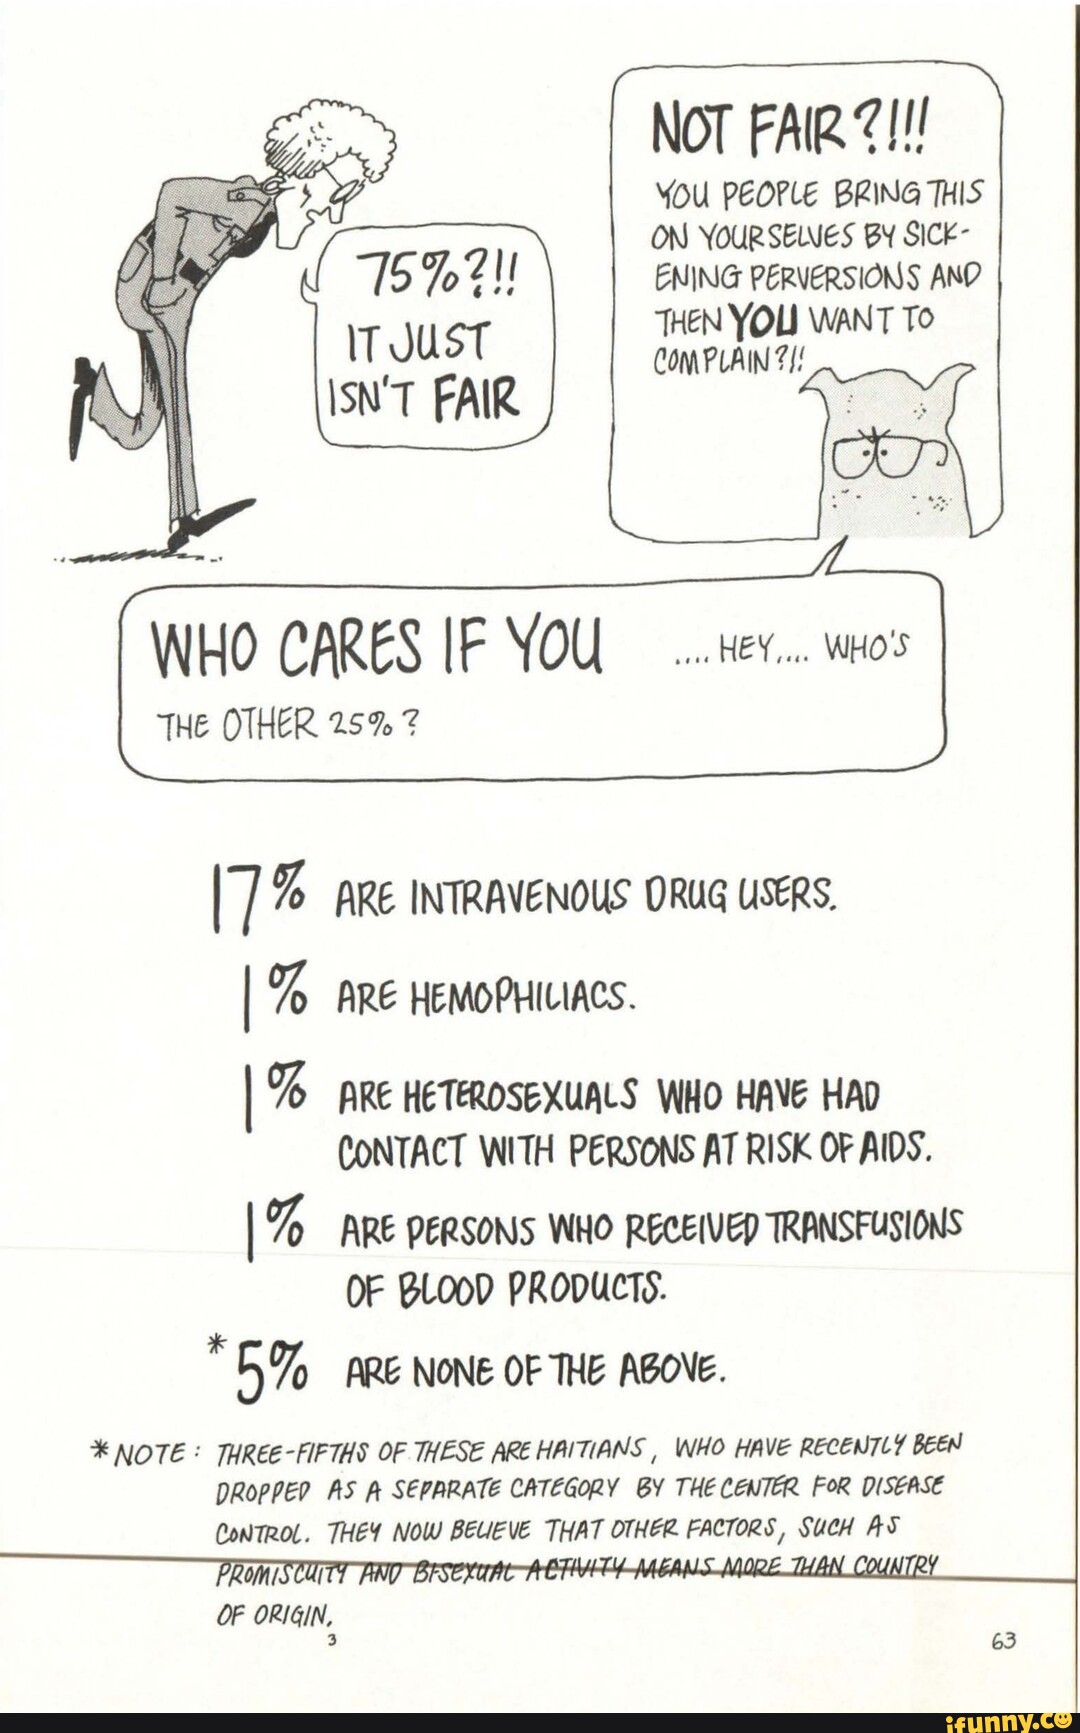 75%?!!
IT JUST
ISN'T FAIR
NOT FAIR?!!!
YOU PEOPLE BRING THIS
ON YOURSELVES BY SICK-
ENING PERVERSIONS AND
THEN YOU WANT TO
COMPLAIN?!!
WHO CARES IF YOU ....HEY,... WHO'S
THE OTHER 25%?
17% ARE INTRAVENOUS DRUG USERS.
1% ARE HEMOPHILIACS.
1% ARE HETEROSEXUALS WHO HAVE HAD
CONTACT WITH PERSONS AT RISK OF AIDS.
1% ARE PERSONS WHO RECEIVED TRANSFUSIONS
OF BLOOD PRODUCTS.
*5% ARE NONE OF THE ABOVE.
*NOTE: THREE-FIFTHS OF THESE ARE HAITIANS, WHO HAVE RECENTLY BEEN
DROPPED AS A SEPARATE CATEGORY BY THE CENTER FOR DISEASE
CONTROL. THEY NOW BELIEVE THAT OTHER FACTORS, SUCH AS
PROMISCUITY AND BISEXUAL ACTIVITY MEANS MORE THAN COUNTRY
OF ORIGIN.
3
63
ifunny.co